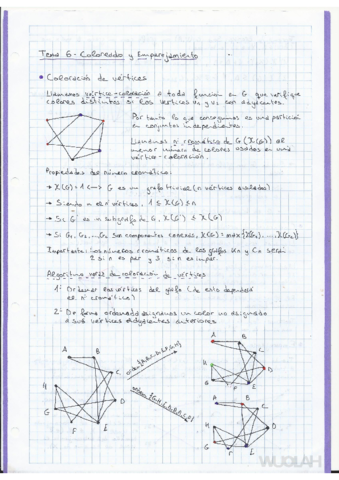 Tema 6 - Coloreado y Emparejamiento
• Coloración de vértices
Llamamos vértico-coloración a toda función en G que verifique
colores distintos si los vértices u1 y u2 son adyacentes.
Por tanto lo que conseguimos es una partición
en conjuntos independientes.
Llamamos nº cromático de G (X(G)) al
menor número de colores usados en una
vértice-coloración.
Propiedades del número cromático:
→ X(G)=1 <-> G es un grafo trivial (n vértices aislados)
→ Siendo n el nº vértices, 1 ≤ X(G) ≤ n
→ Si G' es un subgrafo de G, X(G') ≤ X(G)
→ Si G1, G2,...,Gn son componentes conexas, X(G) = max{X(G1), ..., X(Gn)}
Importante: Los números cromáticos de los grafos Kn y Cn serán
2 si n es par y 3 si n es impar.
Algoritmo voraz de coloración de vértices
1- Ordenar los vértices del grafo (de esto dependerá
el nº cromático)
2- De forma ordenada asignamos un color no asignado
a sus vértices adyacentes anteriores
A
B
C
D
E
F
G
H
A
B
C
D
E
H
G
F
A
B
C
D
E
F
G
H
WUOLAH